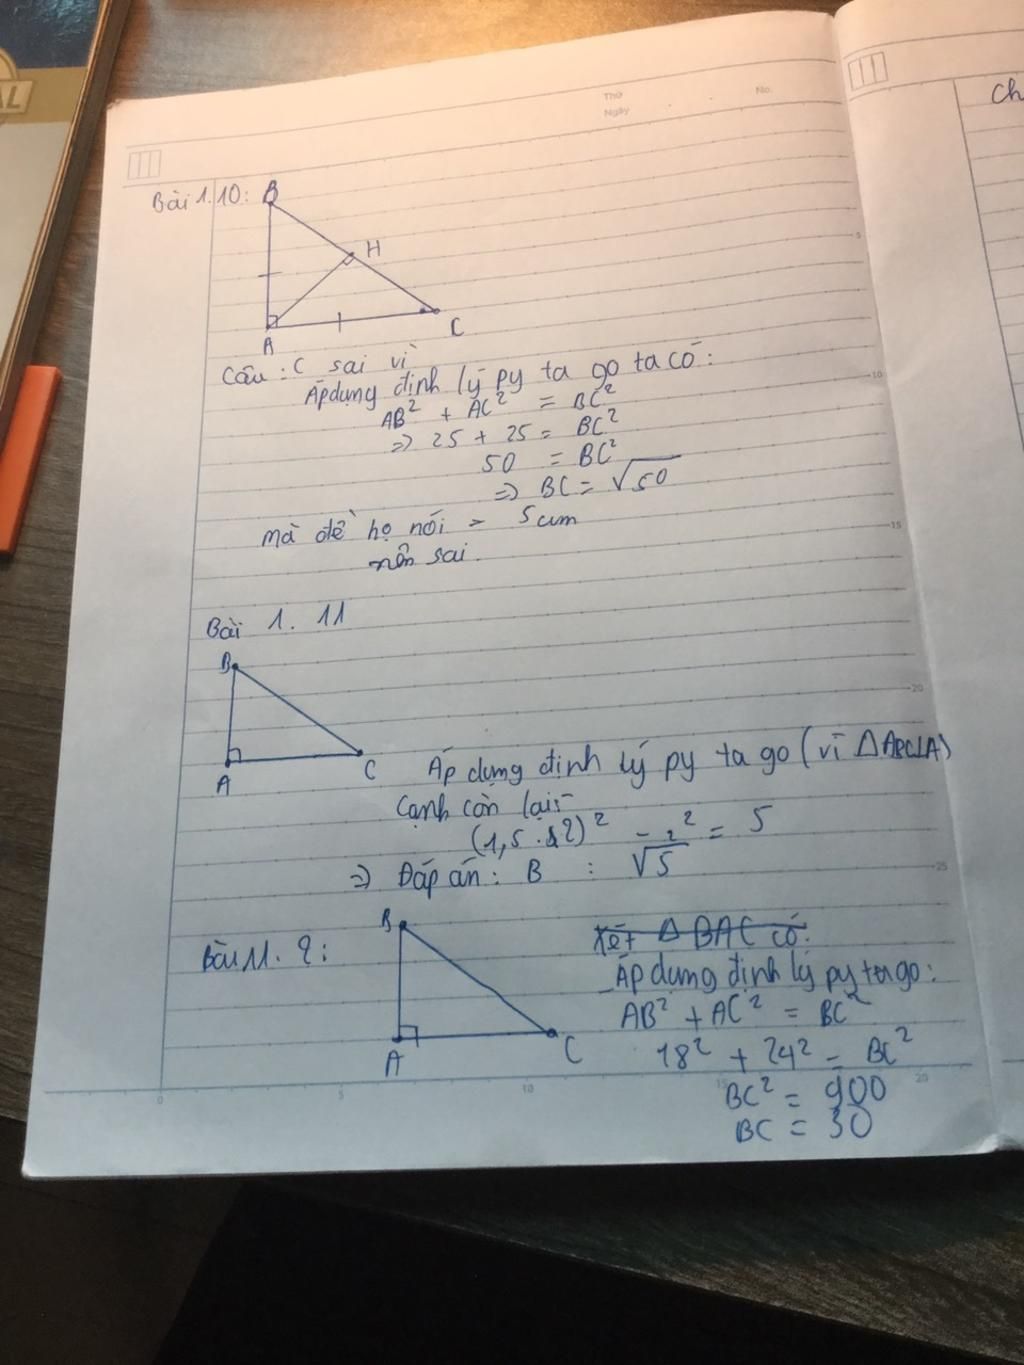 AL
Thứ
Ngày
No.
Ch
Bài 1.10:
B
H
A
C
Câu : C sai vì
Áp dụng định lý py ta go ta có :
AB² + AC² = BC²
=> 25 + 25 = BC²
50 = BC²
=> BC = √50
mà đề họ nói = 5cm
nên sai.
Bài 1. 11
B
A
C
Áp dụng định lý py ta go ( vì △ABC⊥A)
Cạnh còn lại:
² = 5
=> Đáp án : B : √5
Bài 11. 2 :
B
A
C
Xét △ BAC có:
Áp dụng định lý py ta go :
AB² + AC² = BC²
18² + 24² = BC²
BC² = 900
BC = 30
5
10
15
20
25
0
5
10
15
20